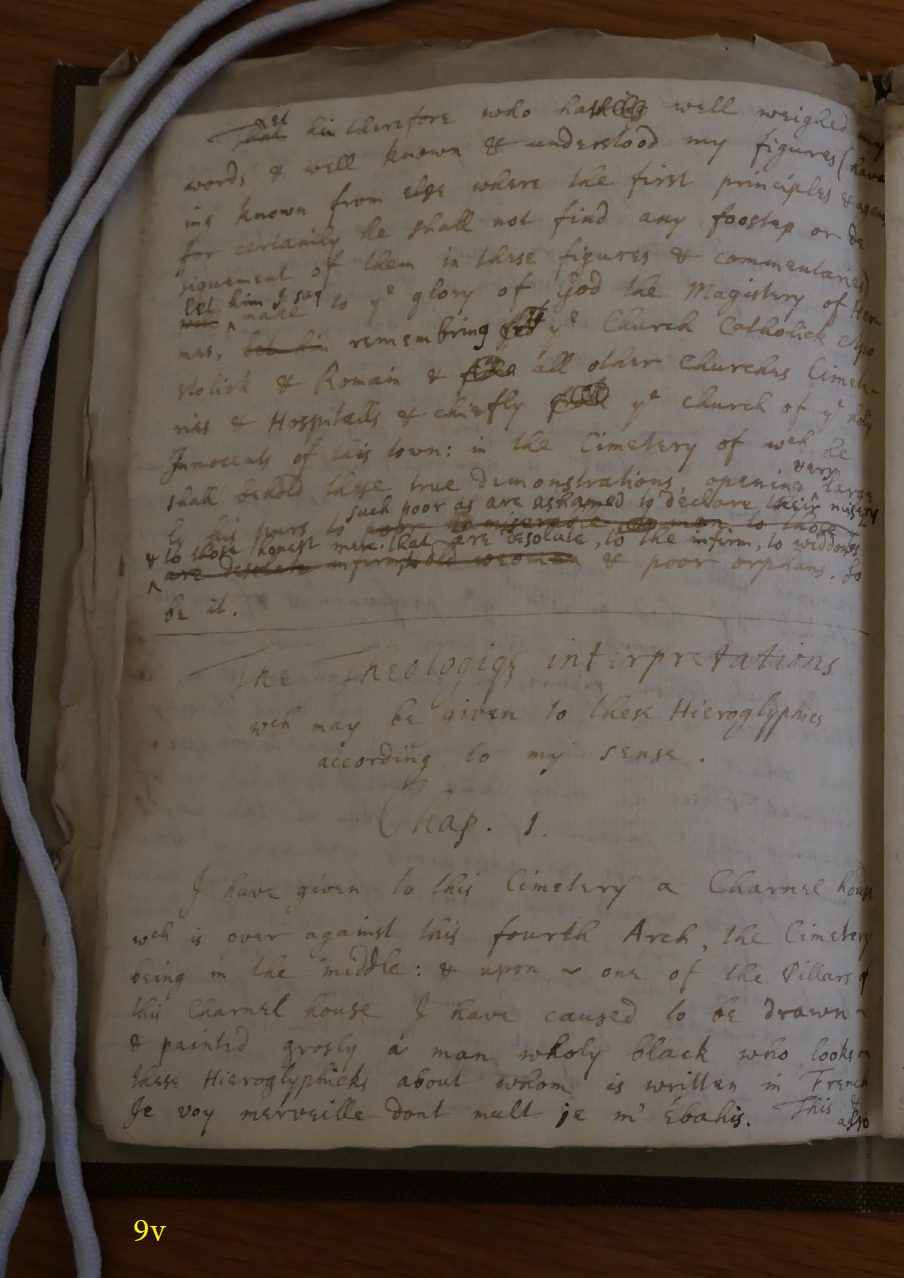 Let him therefore who hath well weighed my
words & well known & understood my figures (have
ing known from else where the first principles & agents
for certainly he shall not find any foostep or de
signement of them in these figures & commentaries)
let him I say make to yᵉ glory of God the Magistery of Her-
mes, let him remembring yᵉ Church Catholick Apo
stolick & Romain & all other Churches Cimete-
ries & Hospitalls & chiefly yᵉ church of yᵉ holy
Innocents of this town: in the Cimetery of wᶜʰ he
shall behold these true demonstrations, opening very large
ly his purs to such poor as are ashamed to declare their misery
& to those honest men that are desolate, to the infirm, to widdows
are desolate infirm, old weomen & poor orphans. So
be it.
The Theologiqe interpretations
wᶜʰ may be given to these Hieroglyphics
according to my sense.
Chap. 1.
I have given to this Cimetery a Charnel house
wᶜʰ is over against this fourth Arch, the Cimetery
being in the middle: & upon ~ one of the Pillars of
this Charnel house I have caused to be drawn ~
& painted grosly a man wholy black who looks on
these Hieroglyphicks about whom is written in French
Je voy merveille dont mult je m' Ébahis. This &
also
9v